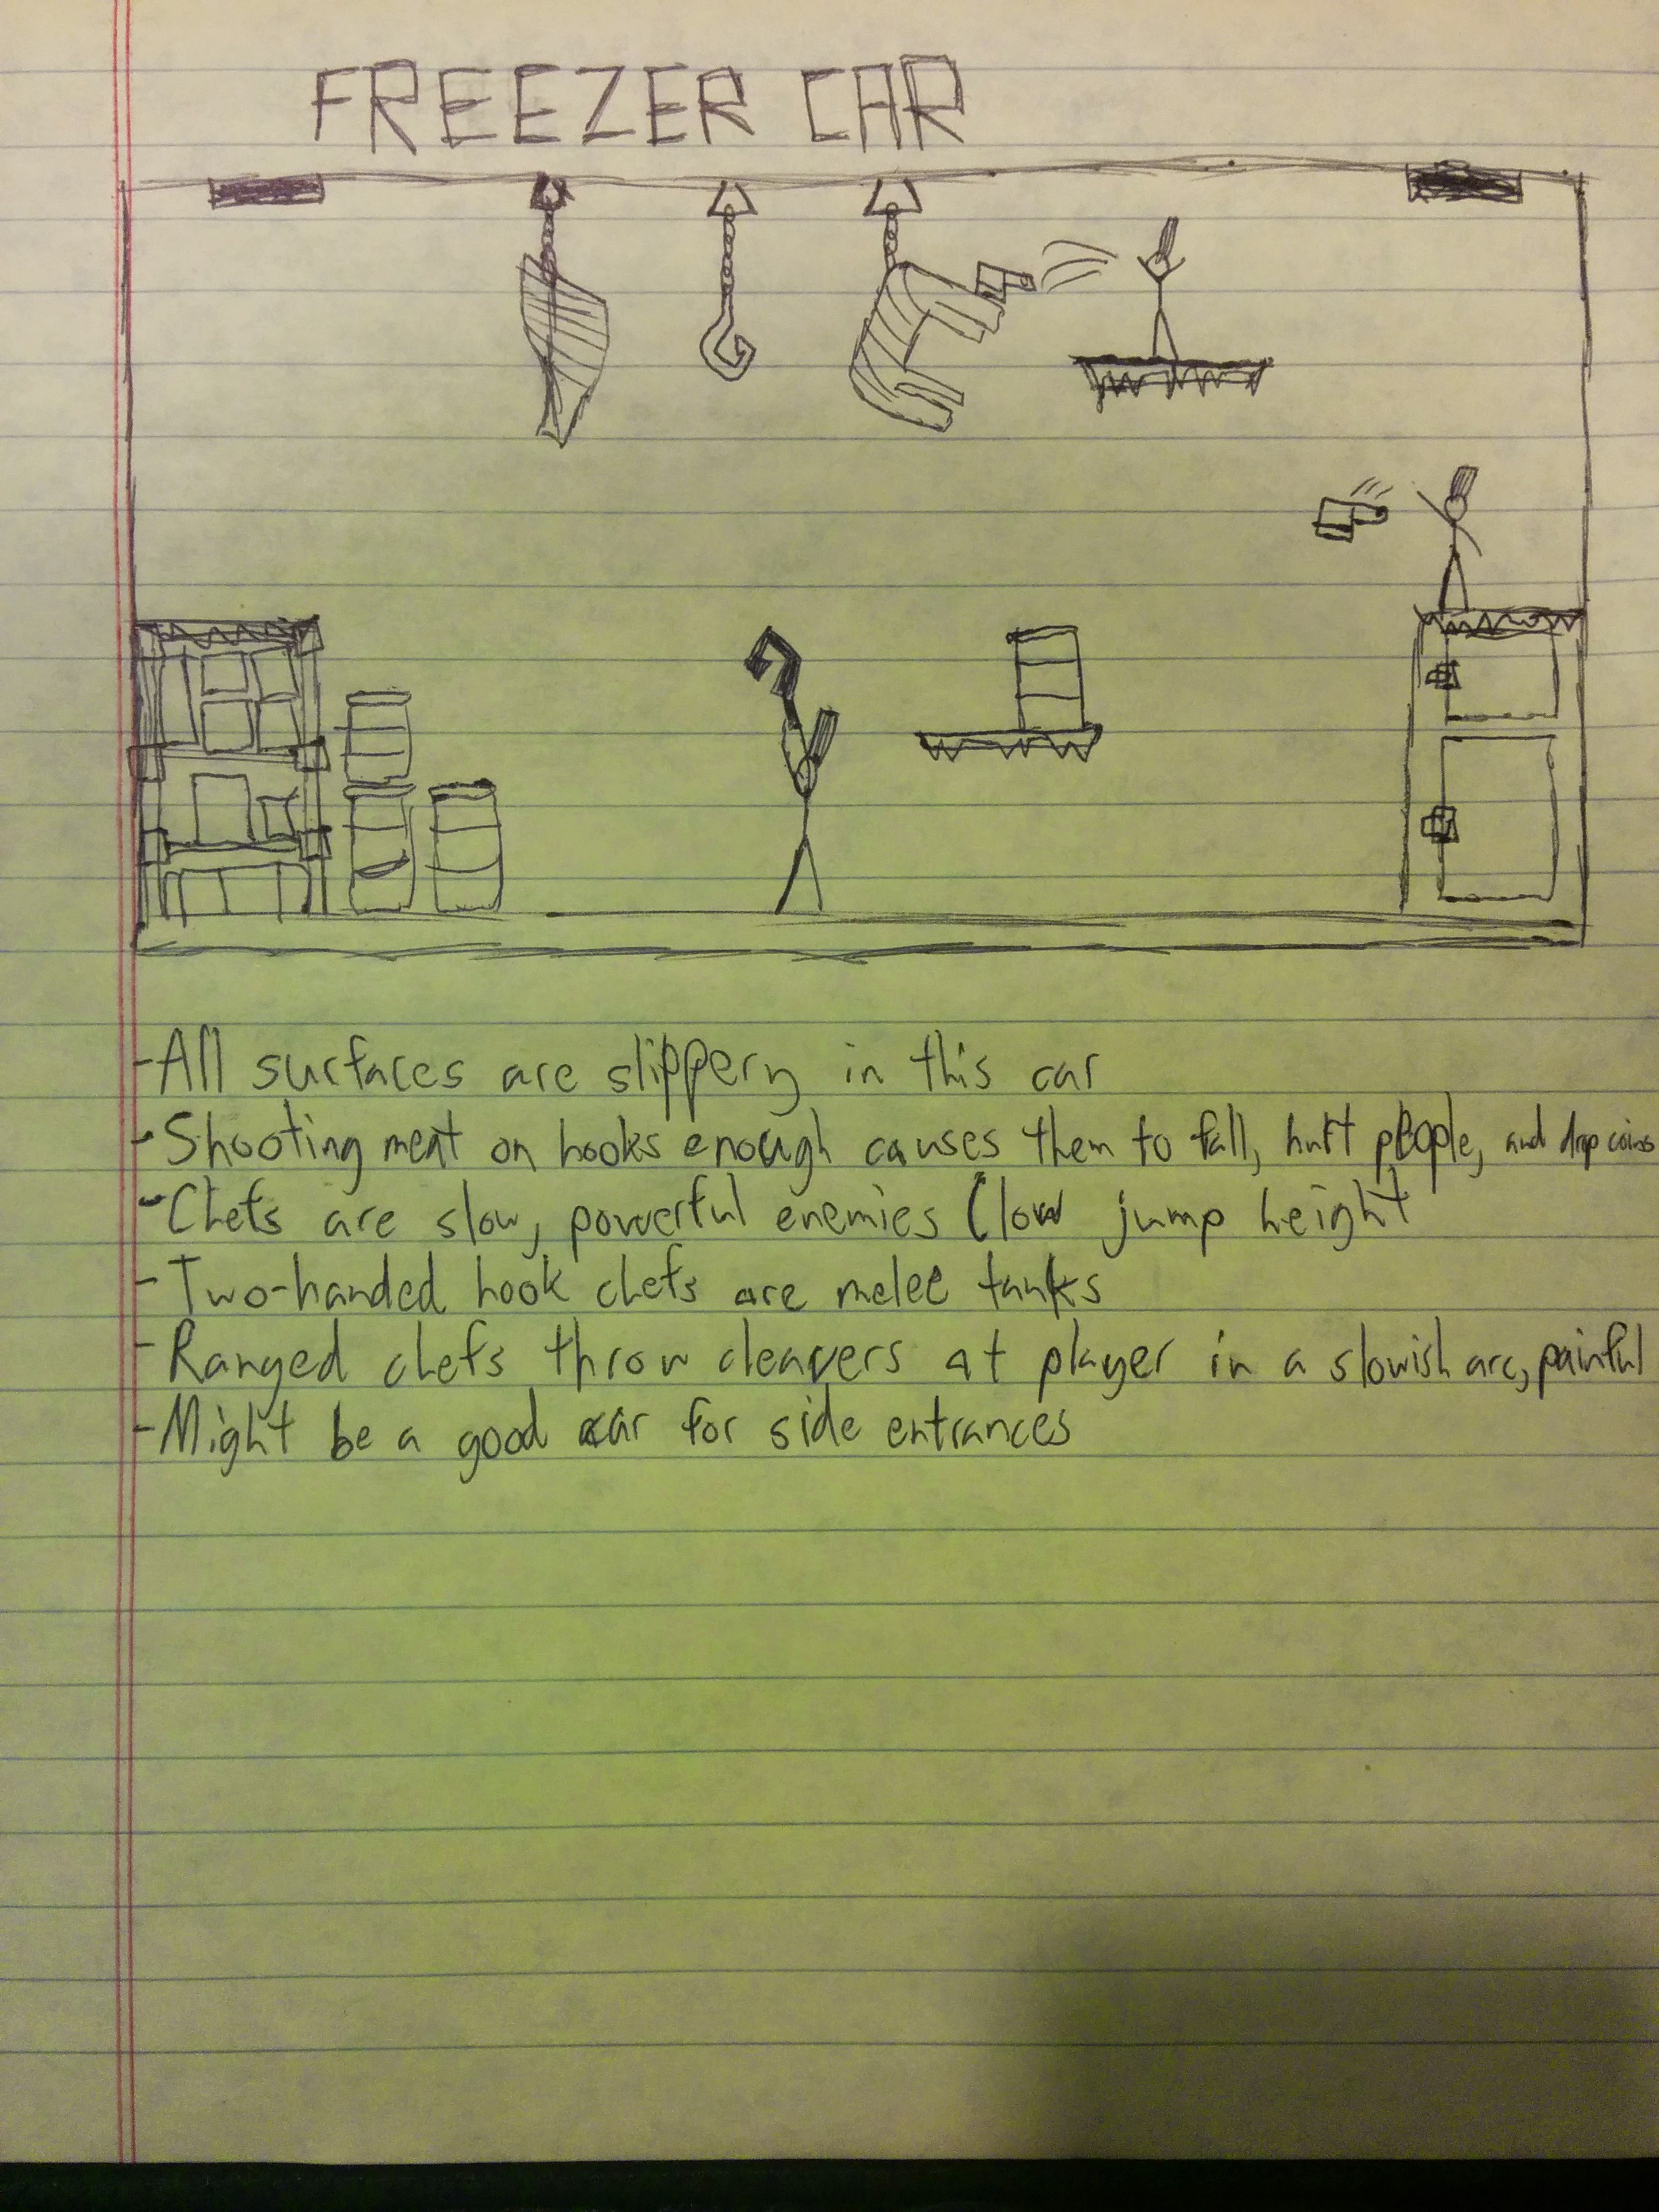 FREEZER CAR
-All surfaces are slippery in this car
-Shooting meat on hooks enough causes them to fall, hurt people, and drop coins
-Chefs are slow, powerful enemies (low jump height
-Two-handed hook chefs are melee tanks
-Ranged chefs throw cleavers at player in a slowish arc, painful
-Might be a good car for side entrances